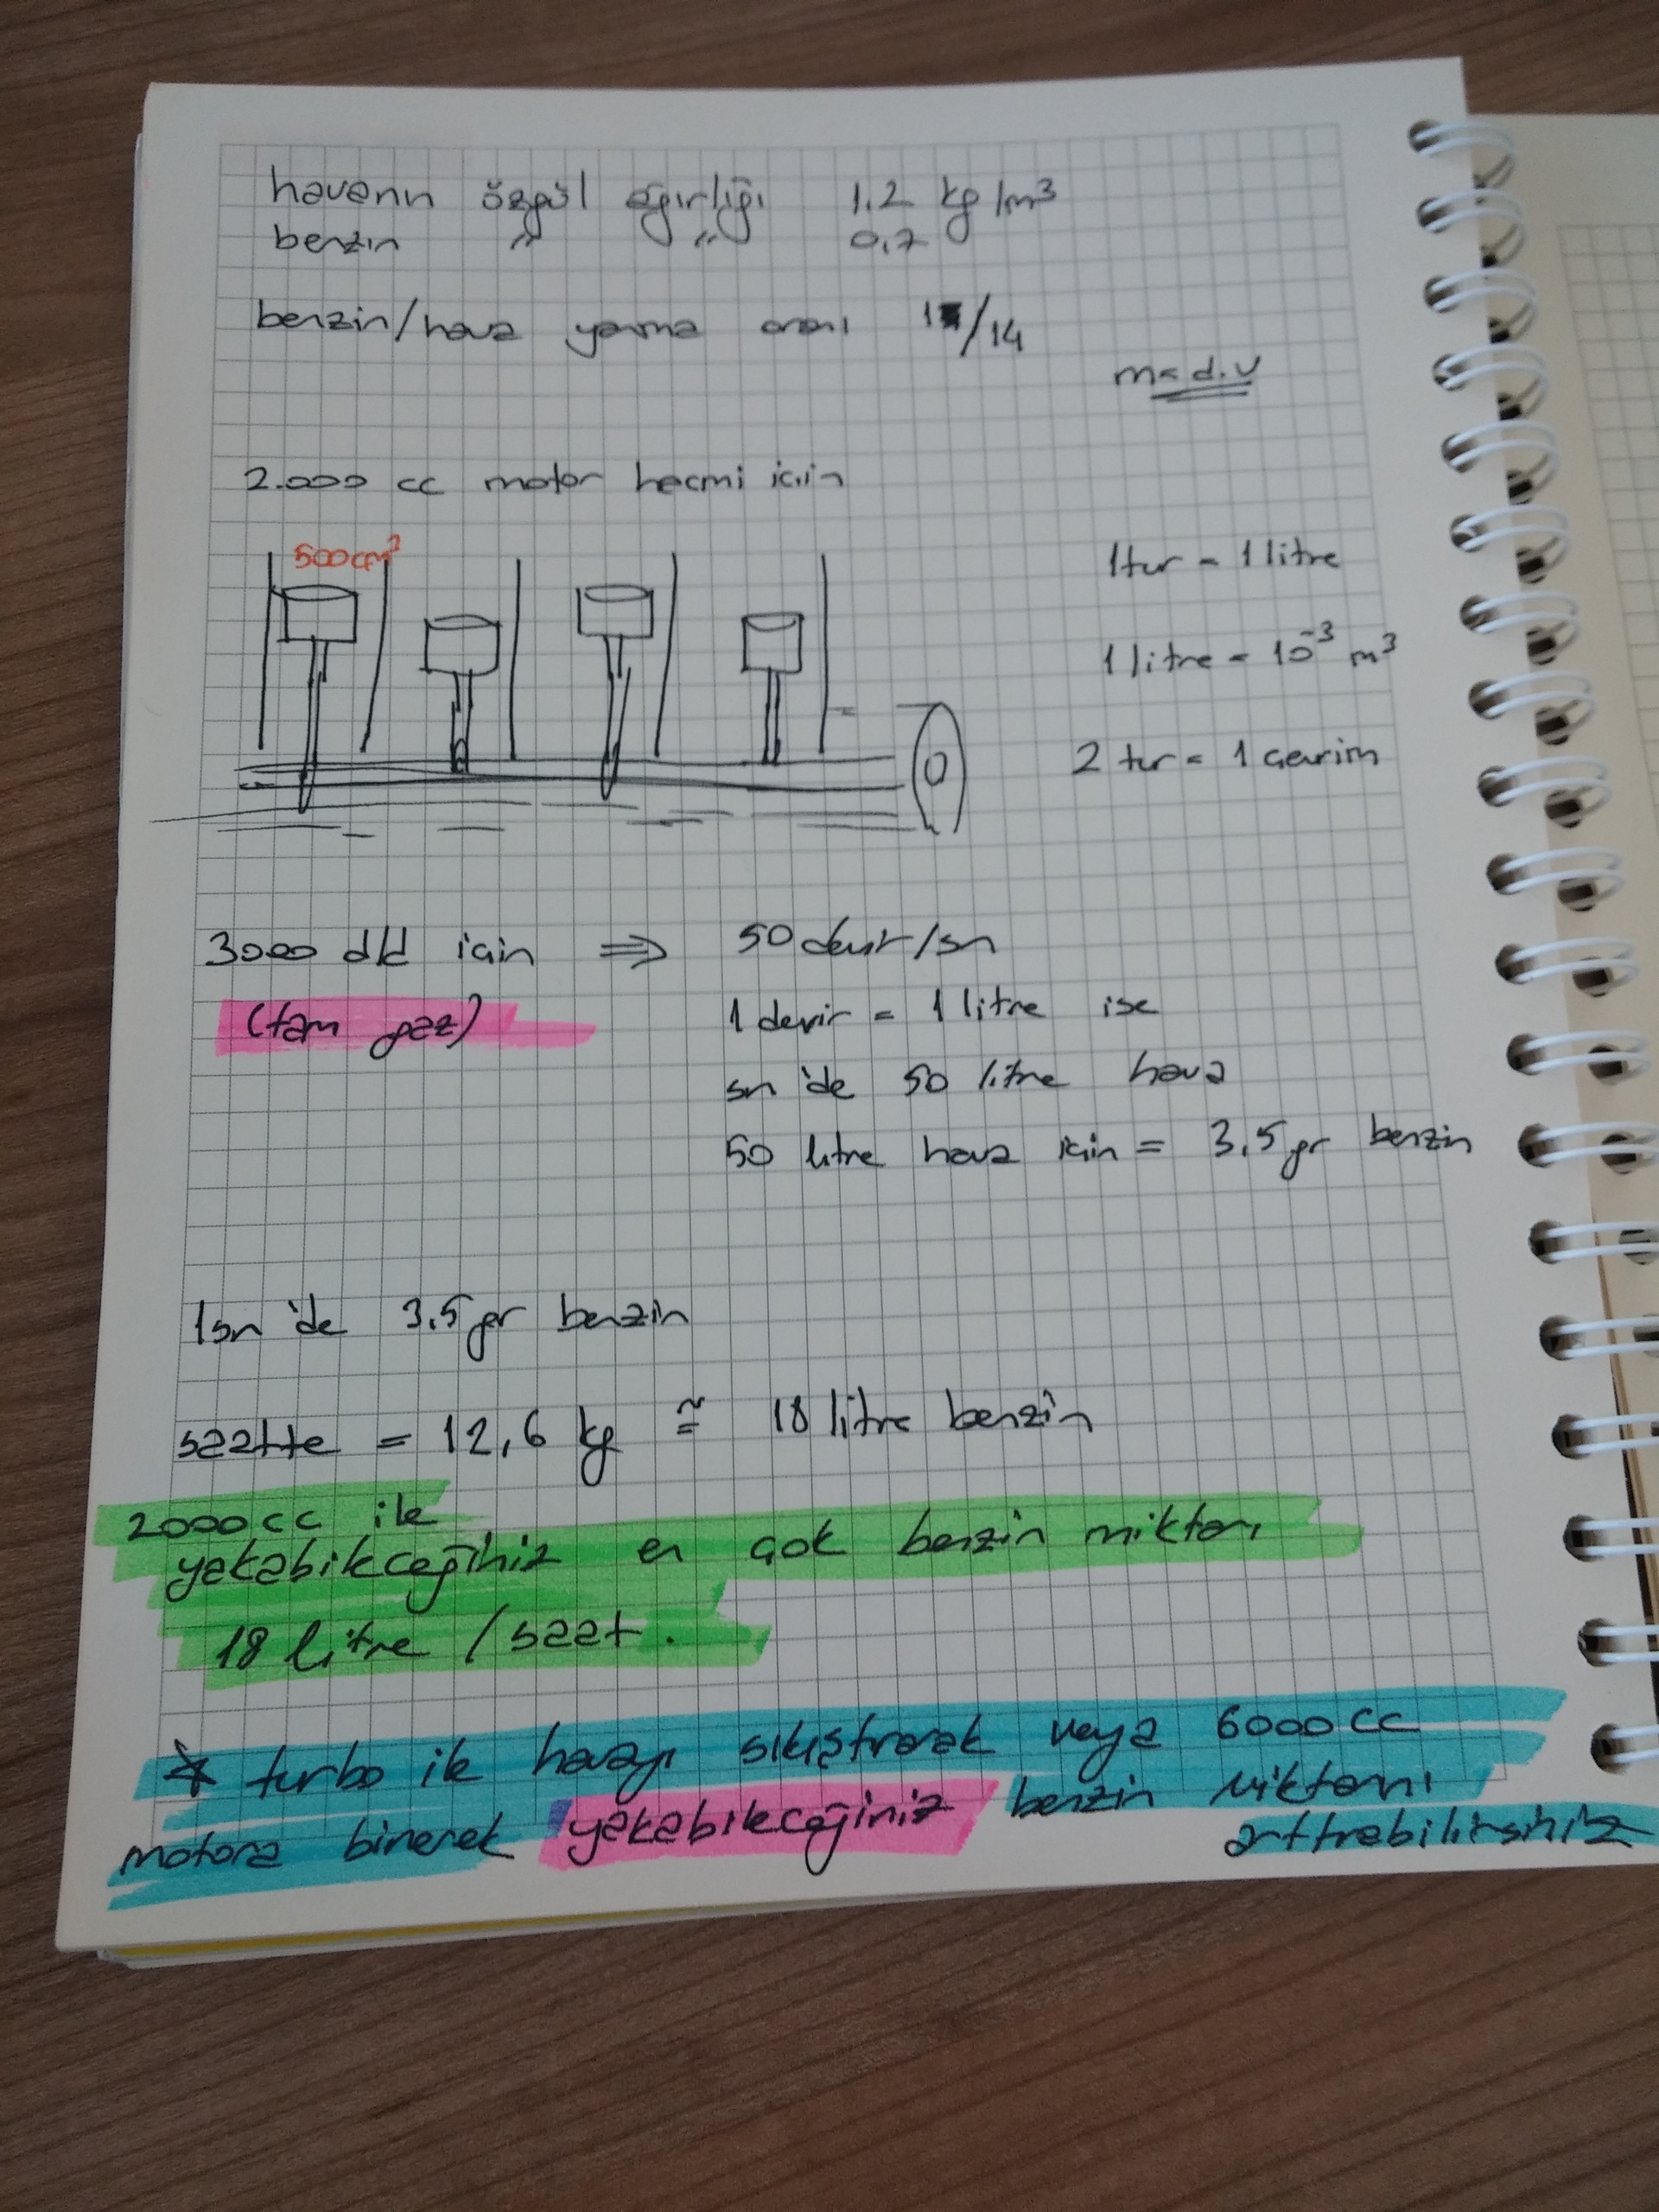 havanın özgül ağırlığı 1.2 kg/m³
benzin " " 0,7
benzin/hava yanma oranı 1/14
m = d.v
2.000 cc motor hacmi için
500 cm³
1 tur = 1 litre
1 litre = 10⁻³ m³
2 tur = 1 çevrim
3000 d/d için ⇒ 50 devir/sn
(tam gaz)
1 devir = 1 litre ise
sn'de 50 litre hava
50 litre hava için = 3,5 gr benzin
1 sn'de 3,5 gr benzin
saatte = 12,6 kg ≅ 18 litre benzin
2000 cc ile
yakabileceğiniz en çok benzin miktarı
18 litre / saat.
* turbo ile havayı sıkıştırarak veya 6000 cc
motora binerek yakabileceğiniz benzin miktarını
arttırabilirsiniz